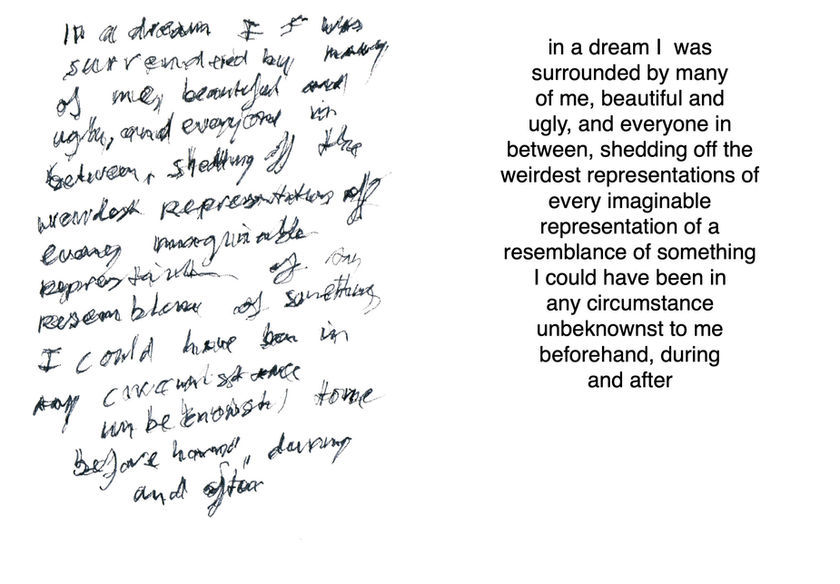 In a dream I I was
surrendered by many
of me, beautiful and
ugly, and everyone in
between, shedding off the
weirdest representations off
every imaginable
representation of an
resemblance of something
I could have been in
any circumstance
unbeknownst to me
before hand, during
and after
in a dream I was
surrounded by many
of me, beautiful and
ugly, and everyone in
between, shedding off the
weirdest representations of
every imaginable
representation of a
resemblance of something
I could have been in
any circumstance
unbeknownst to me
beforehand, during
and after